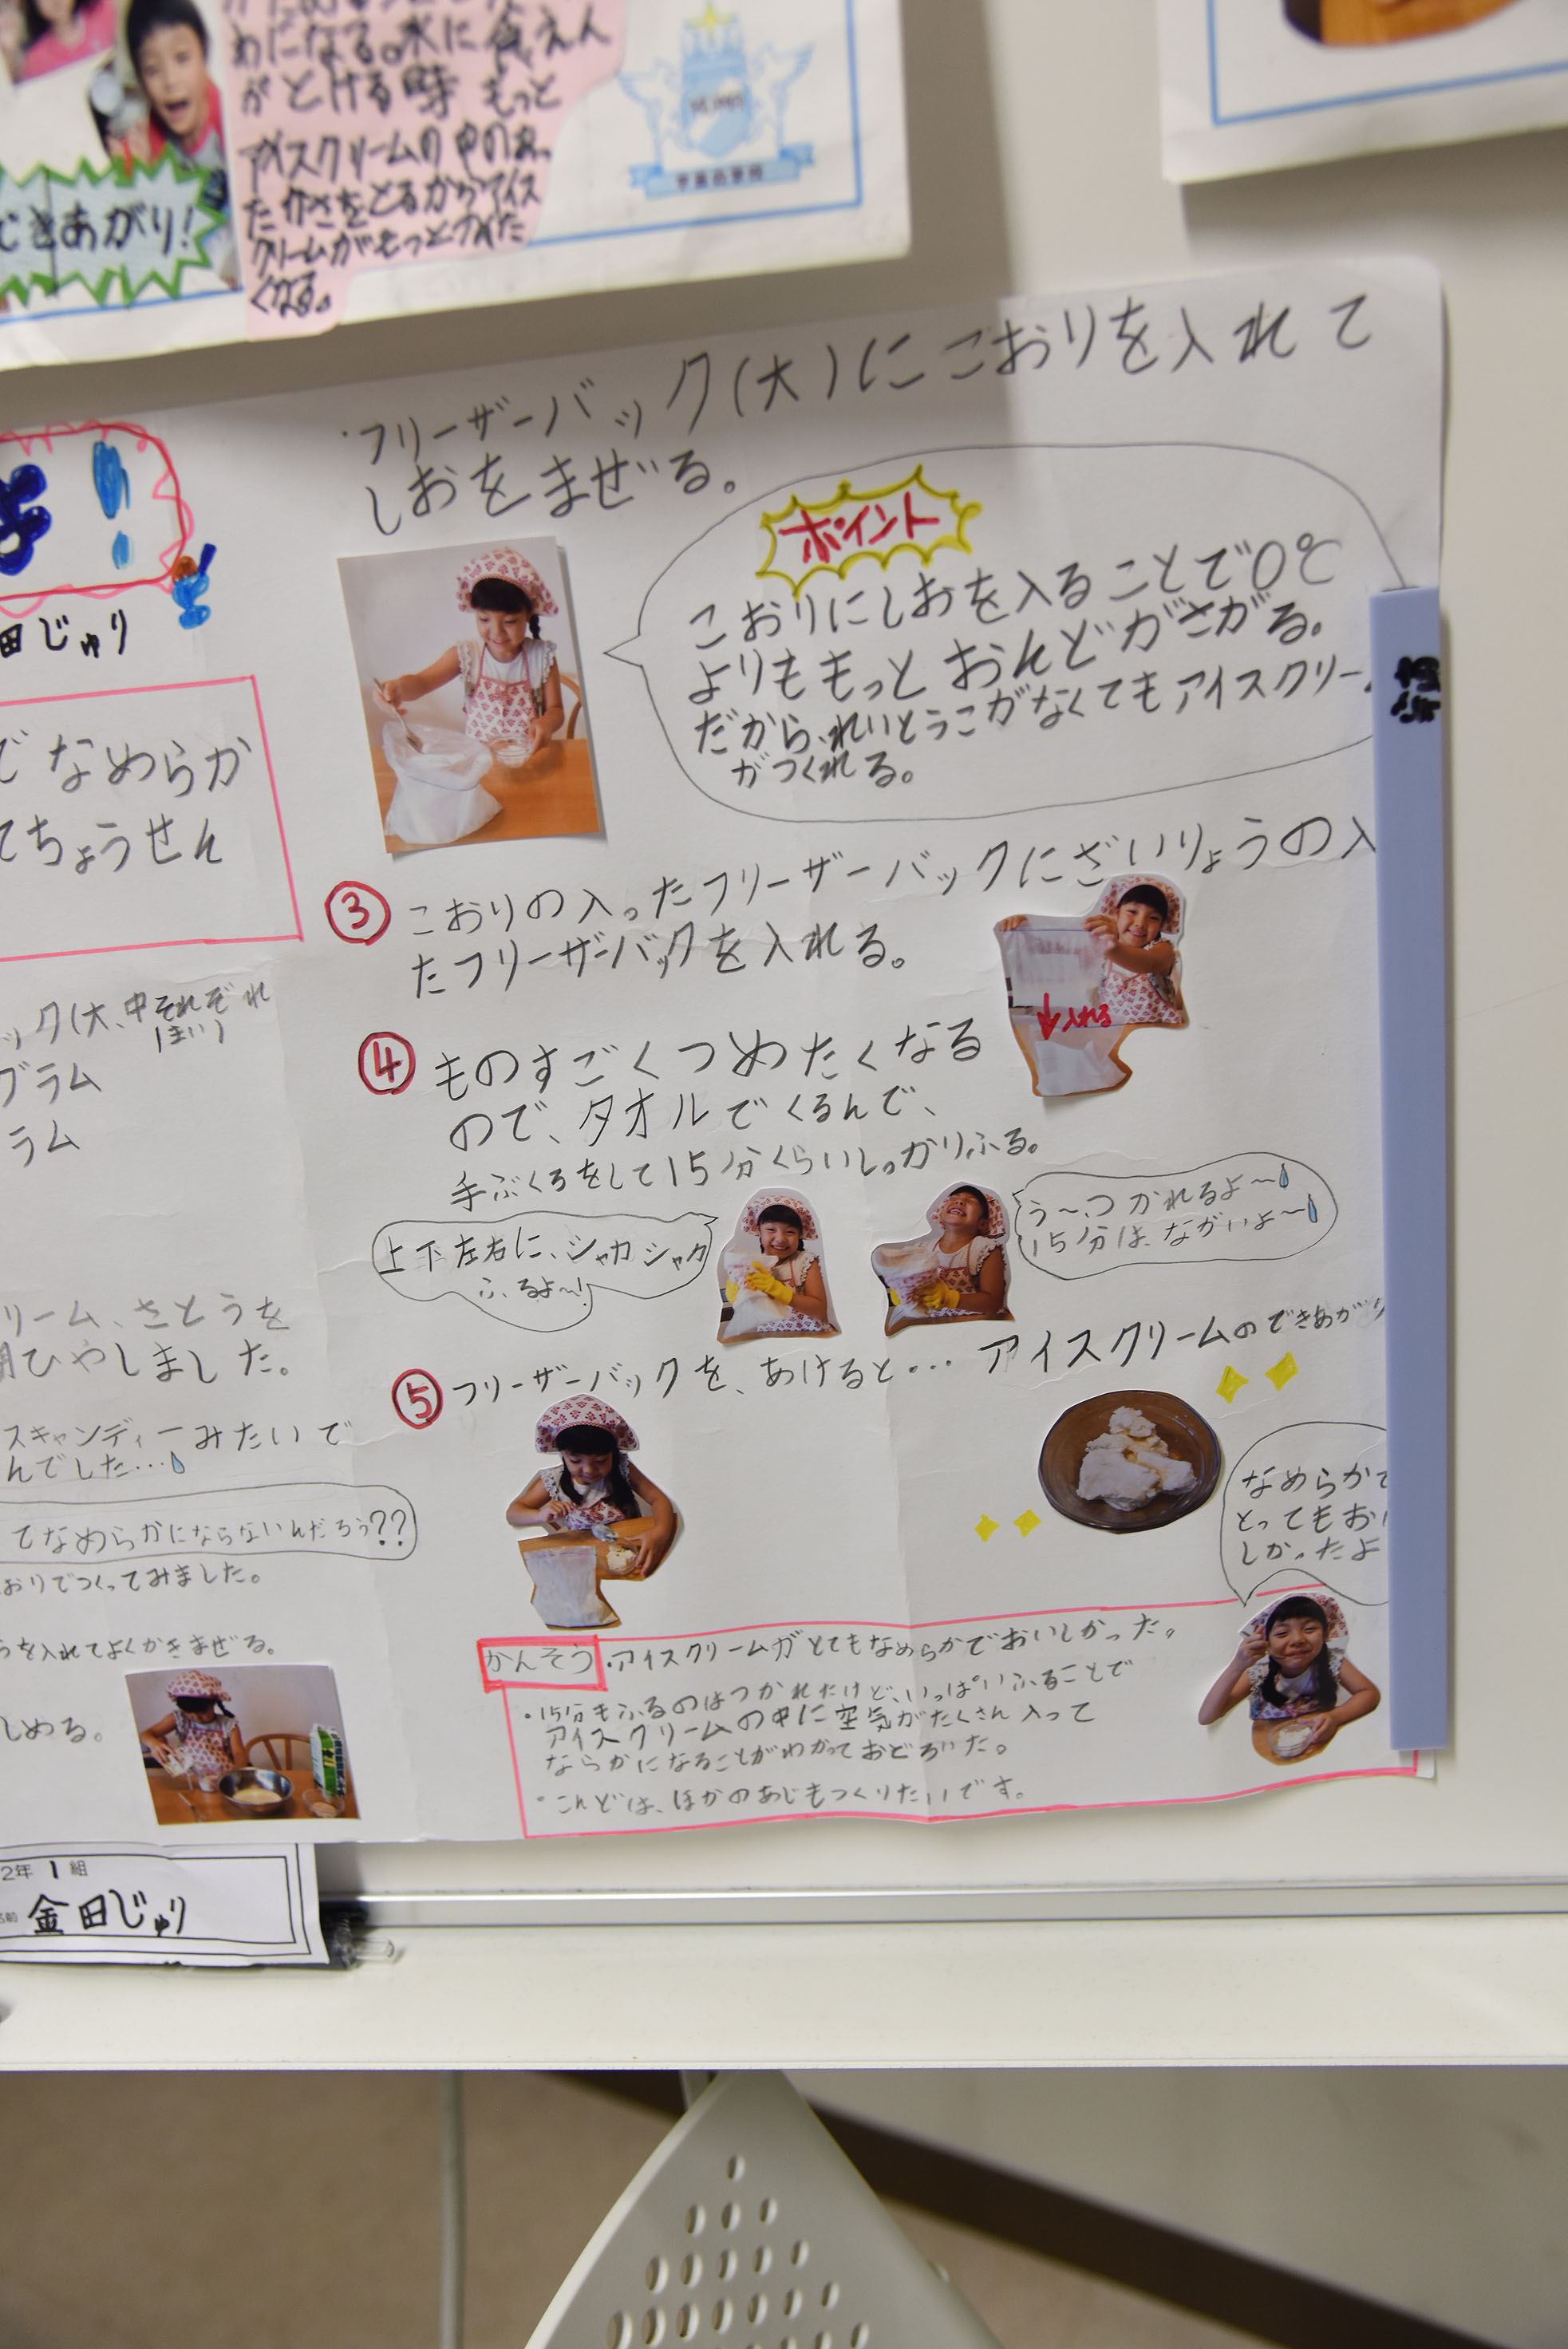 めになる。氷に食えん
がとける時 もっと
アイスクリームの中のあっ
たかさをとるからアイス
クリームがもっとつめた
くなる。
できあがり!
・フリーザーバック(大)にこおりを入れて
しおをまぜる。
ポイント
こおりにしおを入ることで0℃
よりももっとおんどがさがる。
だから、れいとうこがなくてもアイスクリー
がつくれる。
③ こおりの入ったフリーザーバックにざいりょうの入
たフリーザーバックを入れる。
入れる
④ ものすごくつめたくなる
ので、タオルでくるんで、
手ぶくろをして15分くらいしっかりふる。
上下左右に、シャカシャカ
ふるよ〜!
う〜、つかれるよ〜
15分は、ながいよ〜
⑤ フリーザーバックを、あけると… アイスクリームのできあがり
なめらかで
とってもおい
しかったよ
かんそう ・アイスクリームがとてもなめらかでおいしかった。
・15分もふるのはつかれたけど、いっぱいふることで
アイスクリームの中に空気がたくさん入って
ならかになることがわかっておどろいた。
・こんどは、ほかのあじもつくりたいです。
よ!
田じゅり
でなめらか
てちょうせん
ック(大、中それぞれ
1まい)
グラム
ラム
リーム、さとうを
ひやしました。
スキャンディーみたいで
んでした…
てなめらかにならないんだろう??
おりでつくってみました。
うを入れてよくかきまぜる。
しめる。
2年 1 組
名前 金田じゅり